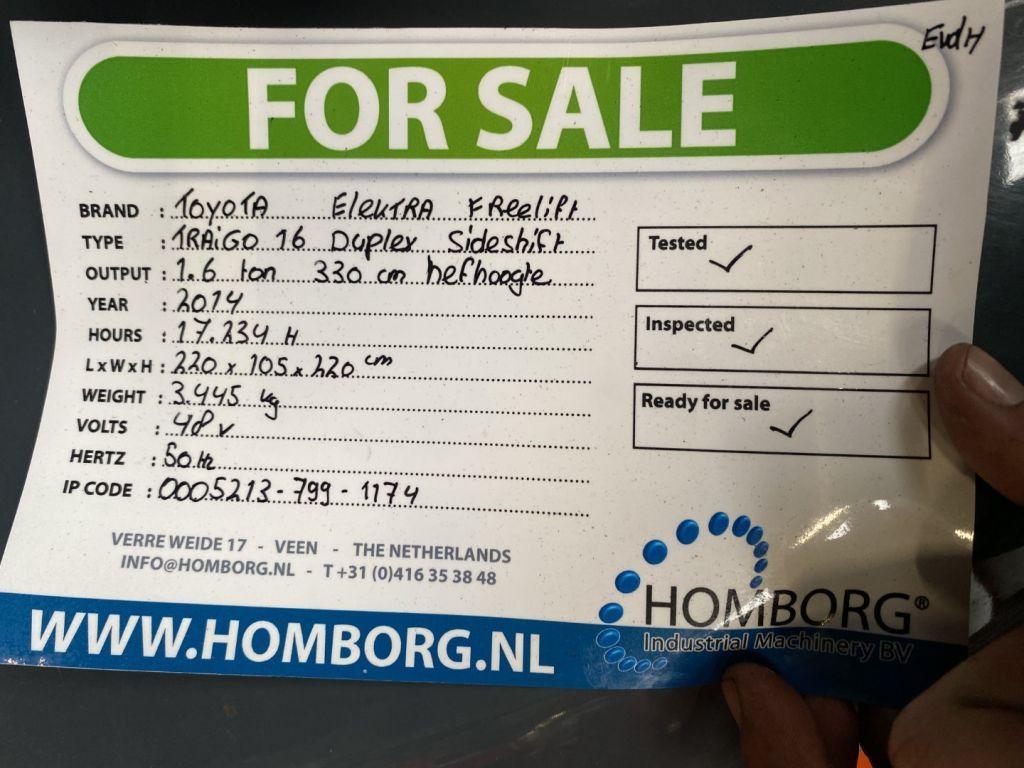 EvdH
FOR SALE
BRAND : TOYOTA ElekTRA FReelift
TYPE : TRAiGO 16 Duplex Sideshift
OUTPUT : 1.6 ton 330 cm hefhoogte
YEAR : 2014
HOURS : 17.234 H
L x W x H : 220 x 105 x 220 cm
WEIGHT : 3.445 kg
VOLTS : 48 v
HERTZ : 50 Hz
IP CODE : 0005213-799-1174
Tested ✓
Inspected ✓
Ready for sale ✓
VERRE WEIDE 17 - VEEN - THE NETHERLANDS
INFO@HOMBORG.NL - T +31 (0)416 35 38 48
WWW.HOMBORG.NL
HOMBORG®
Industrial Machinery BV